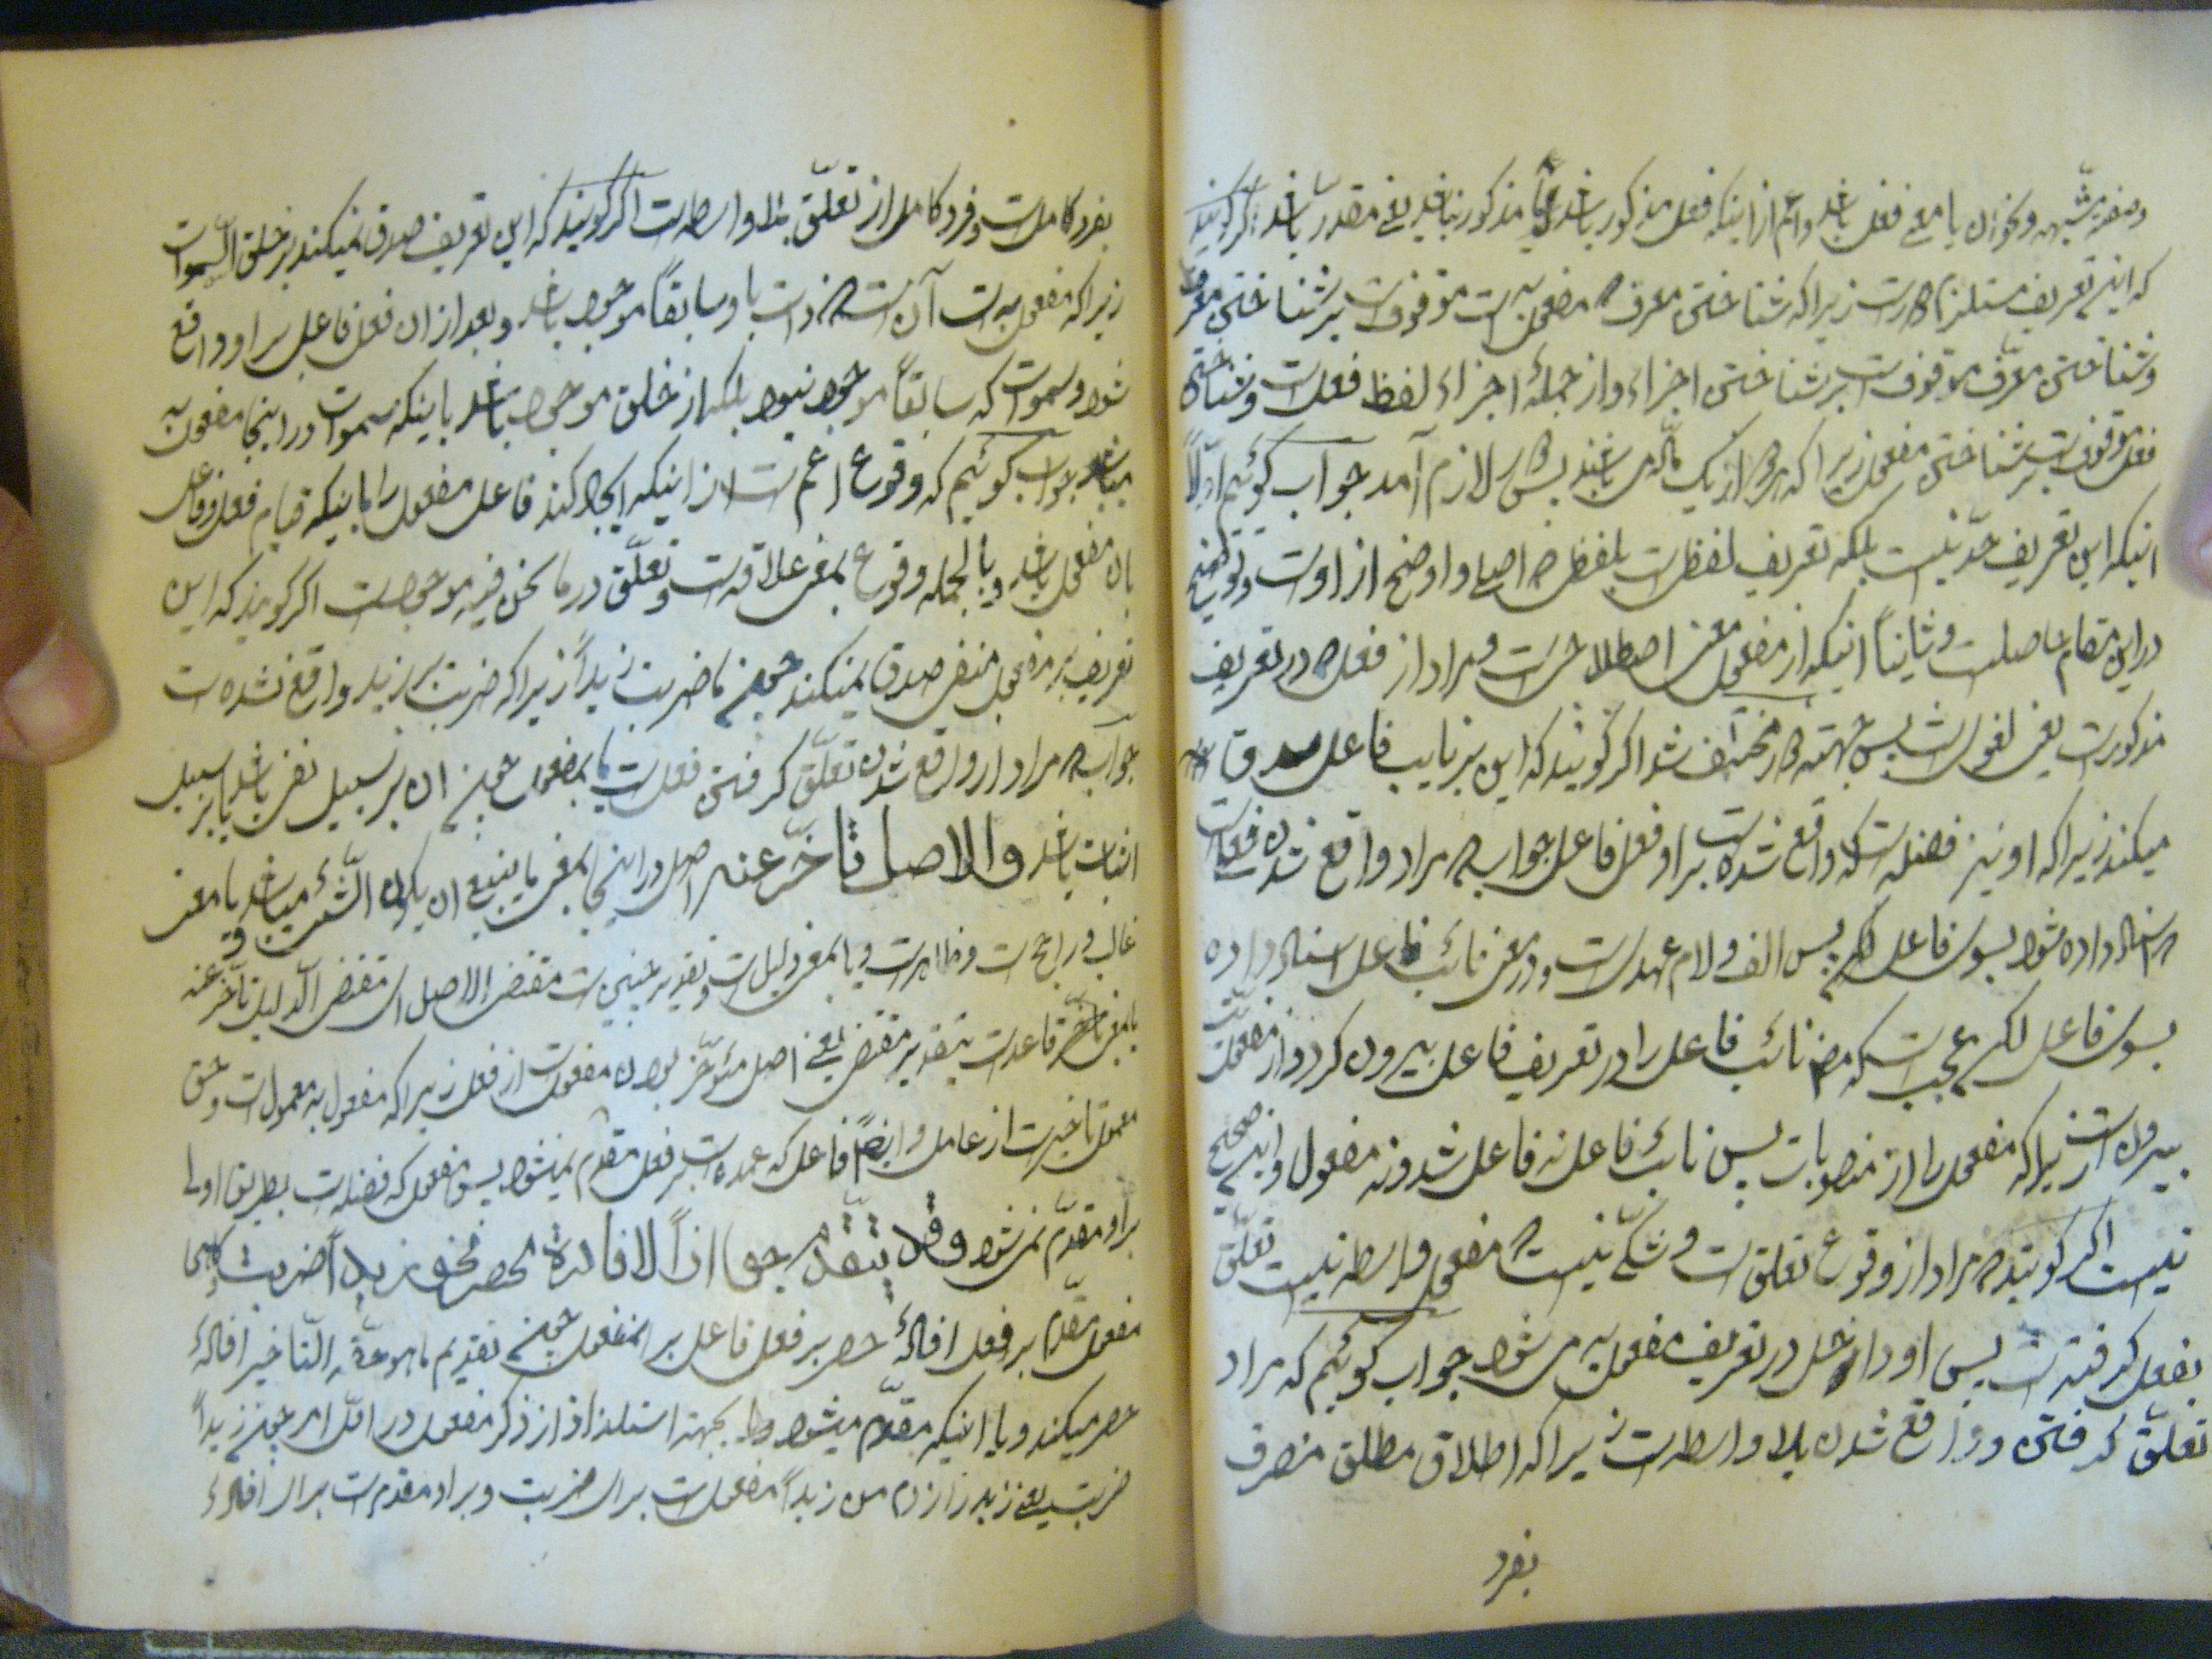 وصفه مشبهه ونحو ان یا معنی فعل باشد واعم از اینکه فعل مذکور باشد یا مذکور نباشد یعنی مقدر باشد اگر گویند
که این تعریف مستلزم دور است زیرا که شناختن معرف که مفعول به است موقوفست بر شناختن معرف
وشناختن معرّف موقوفست بر شناختن اجزاء واز جملهٔ اجزاء لفظ فعل است وشناختن
فعل موقوفست بر شناختن مفعول زیرا که هر دو از یک مادّه می باشند پس دور لازم آمد جواب گوئیم اوّلاً
اینکه این تعریف حدّ نیست بلکه تعریف لفظی است بلفظی که اجلی و اوضح از اوست وتوضیح
در این مقام حاصلست وثانیاً اینکه از مفعول معنی اصطلاحی است ومراد از فعل که در تعریف
مذکور است یعنی لغوی است پس جهته دور مختلف شد اگر گویند که این بر نایب فاعل صدق
میکند زیرا که او نیز فضله است که واقع شده است بر او فعل فاعل جواب که مراد واقع شدن فعلی است
که اسناد داده شود بسوی فاعل پس الف و لام عهد است و در معنی نائب فاعل اسناد داده
بسوی فاعل لکن عجب است که مص نائب فاعل را در تعریف فاعل بیرون کرد و از مفعولیت
بیرون است زیرا که مفعول را از منصوبات پس نائب فاعل نه فاعل شد و نه مفعول و این صحیح
نیست اگر گویند که مراد از وقوع تعلق است و شکّی نیست که مفعول واسطه نیست تعلّق
بفعل گرفته است پس او داخل در تعریف مفعول به می شود جواب گوئیم که مراد
تعلّق گرفتن و واقع شدن بلا واسطه است زیرا که اطلاق مطلق منصرف
بفرد
بفرد کامل است وفرد کامل از تعلّق بلا واسطه است اگر گویند که این تعریف صدق نمیکند بر خلق السّموات
زیرا که مفعول به است آن است که ذات با و سابقاً موجود باشد وبعد از ان فعل فاعل بر او واقع
شود وسموات که سابقاً موجود نبود بلکه از خلق موجود باشد با اینکه سموات در اینجا مفعول به
میباشد جواب گوئیم که وقوع اعم است از اینکه ایجاد کند فاعل مفعول را یا اینکه قیام فعل فاعل
بان مفعول باشد وبالجمله وقوع بمعنی علاقه است وتعلّق در ما نحن فیه موجود است اگر گویند که این
تعریف بر مفعول منفی صدق نمیکند چون ما ضربت زیداً زیرا که ضربت بر زید واقع نشده است
جواب که مراد از واقع شدن تعلّق گرفتن فعل است بمفعول ان بر سبیل نفی باشد یا بر سبیل
اثبات باشد والاصل تأخّر عنه اصل در اینجا بمعنی ما ینبغی ان یکون الشّیء میباشد و یا معنی
غالب و راجح است و ظاهر است و یا بمعنی دلیل است وتقدیر چنین است مقتضی الاصل ای مقتضی الدّلیل تأخّر عنه
یا بمعنی قاعده است بتقدیر مقتضی یعنی اصل مؤخّر بودن مفعول است از فعل زیرا که مفعول به معمول است وحق
معمول تاخیر است از عامل و ایضاً فاعل که عمده است بر فعل مقدّم نمیشود پس مفعول که فضله است بطریق اولی
بر او مقدّم نمی شود وقد یتقدّم جوازاً لافادة الحصر نحو زیداً ضربت
مفعول مقدّم بر فعل افادهٔ حصر بر فعل فاعل بر مفعول چون تقدیم ما هو حقّه التّاخیر افادهٔ
حصر میکند و یا اینکه مقدّم میشود بجهته استلذاذ از ذکر مفعول در اوّل امر چون زیداً
ضربت یعنی زید را زدم من زیداً مفعول است برای ضربت و بر او مقدم است برای افادهٔ